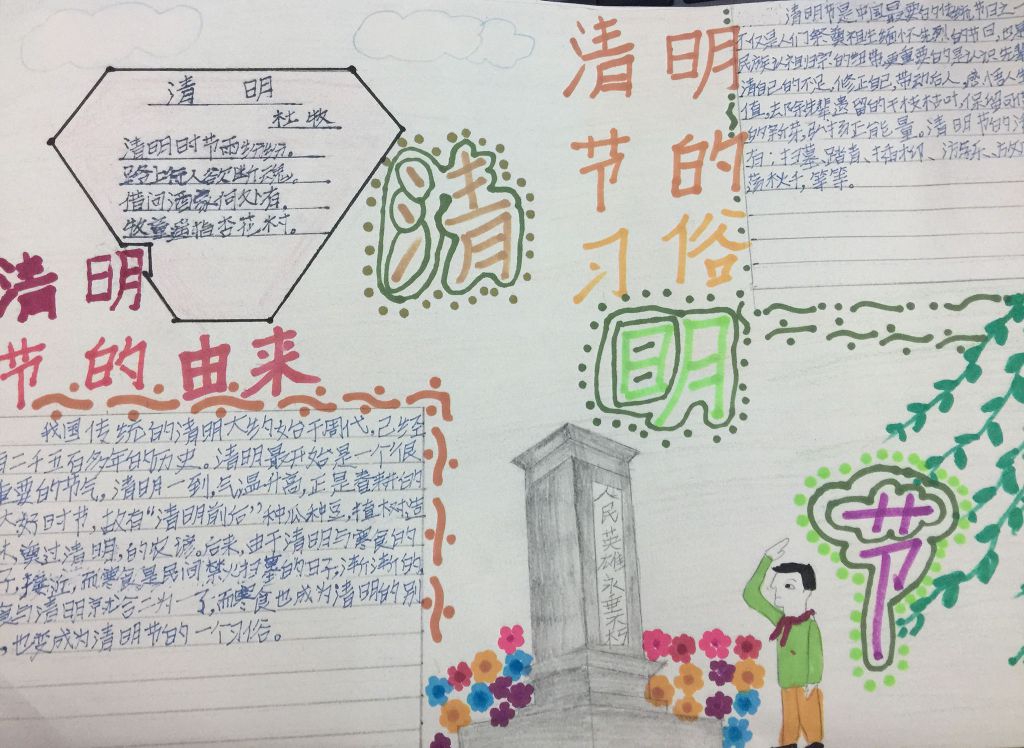 清明
杜牧
清明时节雨纷纷。
路上行人欲断魂。
借问酒家何处有。
牧童遥指杏花村。
清明
节的由来
我国传统的清明大约始于周代,已经
有二千五百多年的历史。清明最开始是一个很
重要的节气。清明一到,气温升高,正是春耕的
大好时节,故有“清明前后”种瓜种豆,植树造
木,莫过清明,的农谚。后来,由于清明与寒食的
子,接近,而寒食是民间禁火扫墓的日子,渐渐的
食与清明就合二为一了,而寒食也成为清明的别
,也变成为清明节的一个习俗。
清
明
节
清明
节的
习俗
清明节是中国最要的传统节日之一
不仅是人们祭奠祖先缅怀先烈的节日,也是
民族认祖归宗的纽带,更重要的是认识先辈
清自己的不足,修正自己,带动后人,感悟人生
值,去除先辈遗留的干枝枯叶,保留可
的新芽,弘扬正能量。清明节的
有:扫墓、踏青、插柳、
荡秋千,等等。
人民英雄永垂不朽